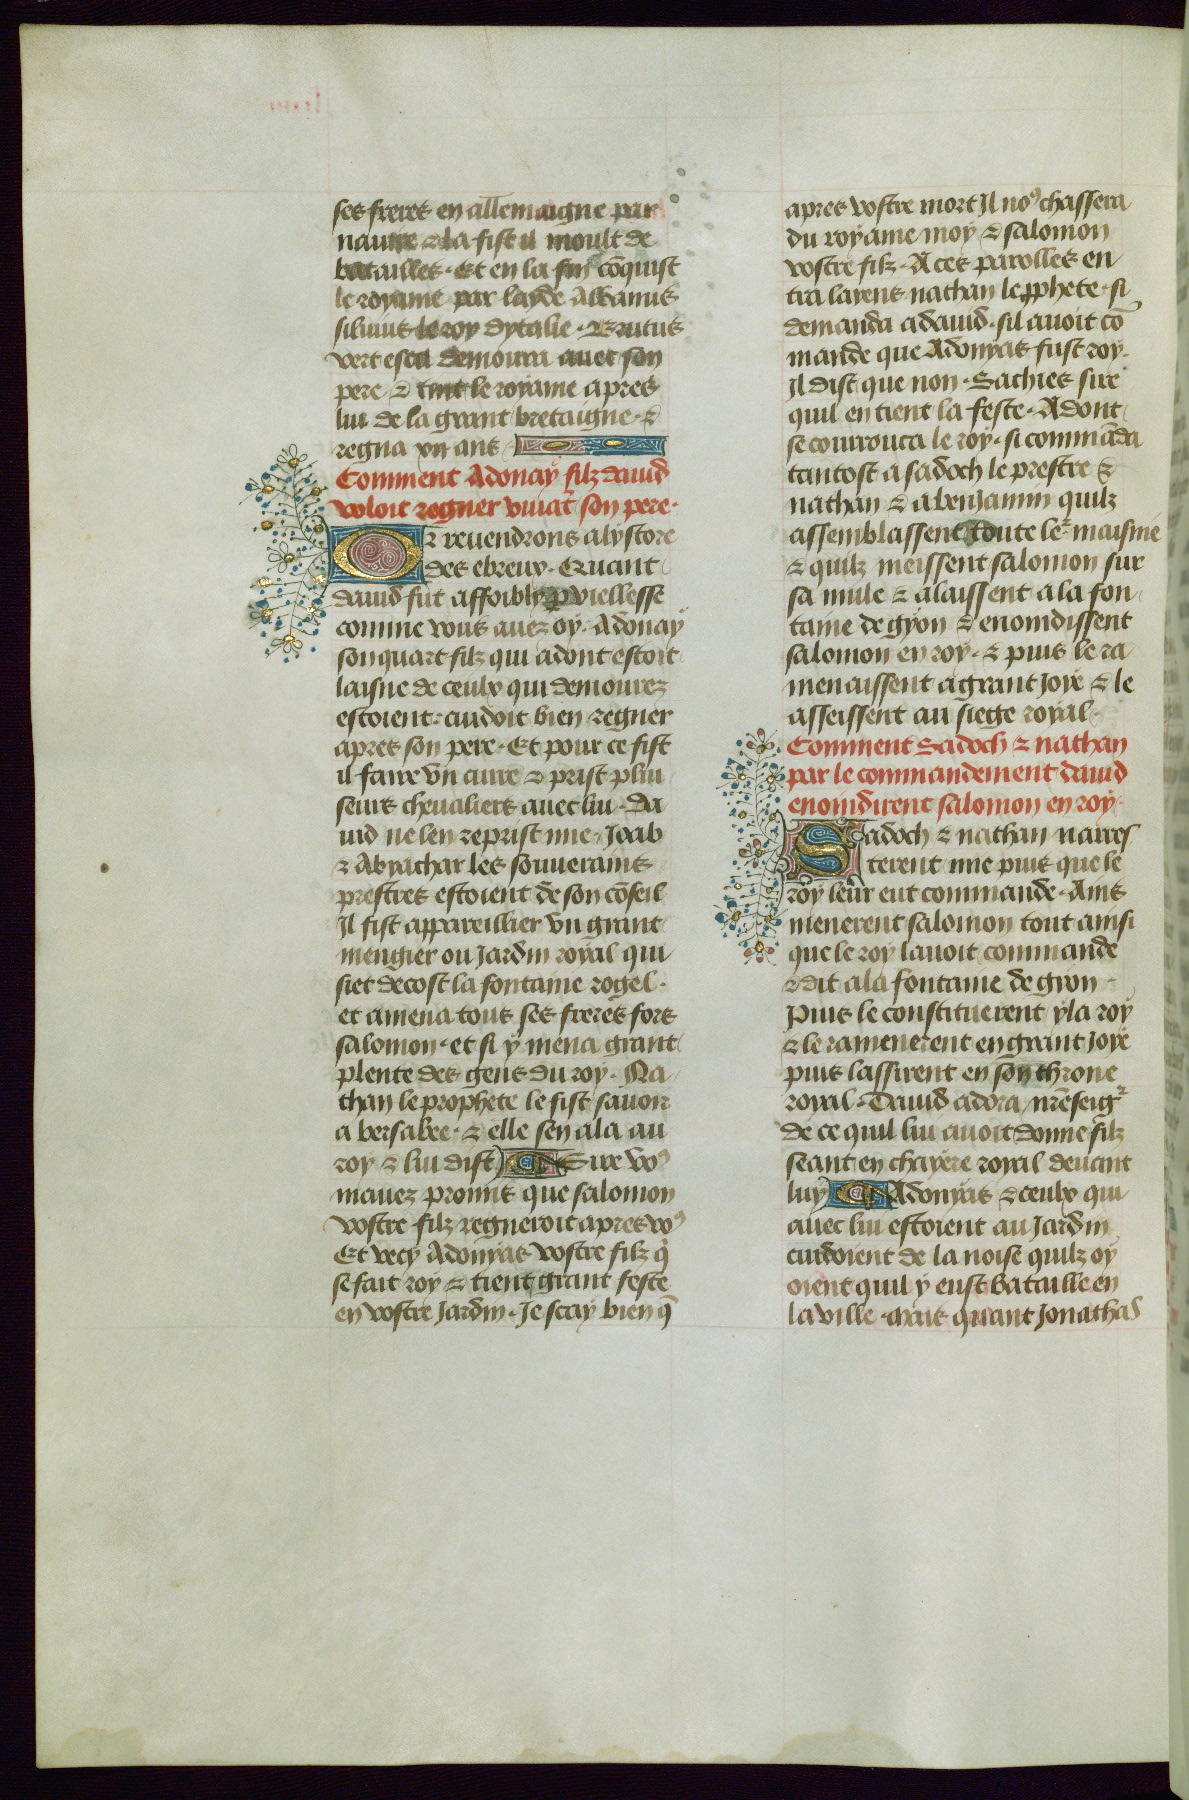 ses freres en allemaigne par
nauire ⁊ la fist il moult de
batailles. Et en la fin cōquist
le royame par layde Albanus
siluius le roy dytalie. Brutus
vert escu demoura auec son
pere ⁊ tint le royame apres
lui de la grant bretaigne. ⁊
regna xii ans
Comment Adonay filz dauid
voloit regner viuāt son pere.
Or reuendrons a lystore
des ebreux. Quant
dauid fut affoibly p viellesse
comme vous auez oy. Adonay
son quart filz qui adont estoit
laisne de ceulx qui demourez
estoient: cuidoit bien regner
apres son pere. Et pour ce fist
il faire vn curre ⁊ prist pluі
seurs cheualiers auec lui. Da
uid ne len reprist mie. Joab
⁊ Abyathar les souuerains
prestres estoient de son cōseil
Il fist appareillier vn grant
mengier ou Jardin royal qui
siet decost la fontaine rogel.
et amena tous ses freres fors
salomon. et si y mena grant
plente des gens du roy. Na
than le prophete le fist sauoir
a bersabee. ⁊ elle sen ala au
roy ⁊ lui dist) Sire voꝰ
mauez promis que salomon
vostre filz regneroit apres voꝰ
Et vecy Adonyas vostre filz q̇
se fait roy ⁊ tient grant feste
en vostre Jardin. Je scay bien q̄
apres vostre mort Il noꝰ chassera
du royame moy ⁊ salomon
vostre filz. A ces parolles en
tra laiens nathan le ꝓphete. si
demanda a dauid. sil auoit cō
mande que Adonyas fust roy.
Il dist que non. Sachies sire
quil en tient la feste. Adont
se courrouca le roy. si commāda
tantost a sadoch le prestre ⁊
nathan ⁊ a benjamin quilz
assemblassent toute leᷣ maisnie
⁊ quilz meissent salomon sur
sa mule ⁊ alaissent a la fon
taine de gyon ⁊ enoindissent
salomon en roy. ⁊ puis le ra
menaissent a grant joye ⁊ le
asseissent au siege royal.
Comment Sadoch ⁊ nathan
par le commandement dauid
enoindirent salomon en roy.
Sadoch ⁊ nathan narres
terent mie puis que le
roy leur eut commande. Ains
menerent salomon tout ainsi
que le roy lauoit commande
⁊ dit a la fontaine de gyon
Puis le constituerent yla roy
⁊ le ramenerent en grant joye
puis lassirent en son throne
royal. Dauid adora nr̄e seigᷣ
de ce quil lui auoit donne filz
seant en chayere royal deuant
luy) Adonyas ⁊ ceulx qui
auec lui estoient au Jardin
cuidoient de la noise quilz oy
oient quil y eust bataille en
la ville. mais quant Jonathas